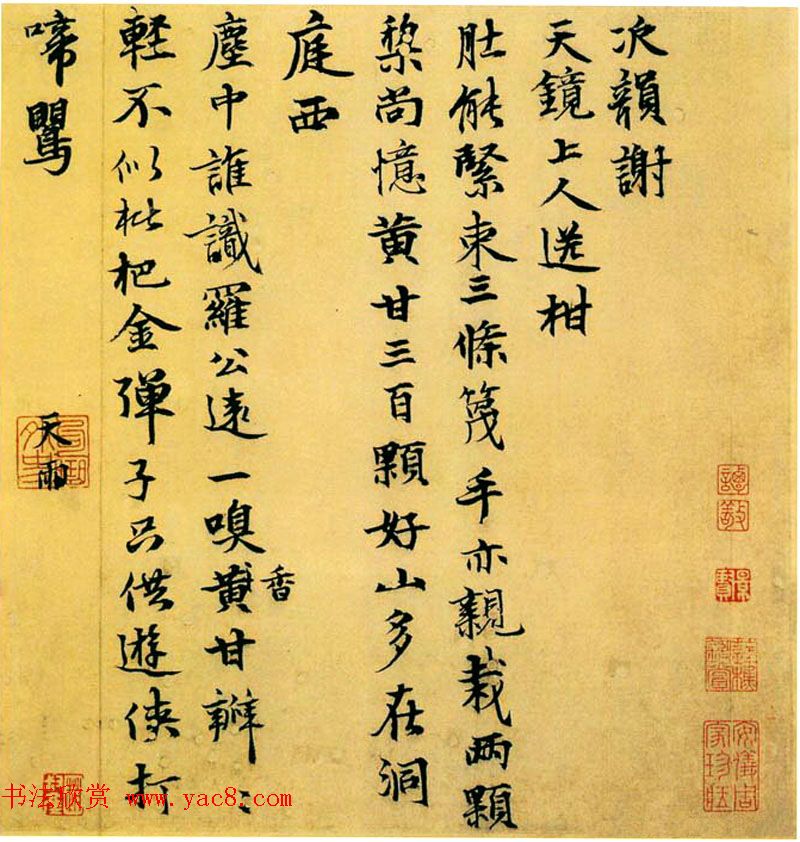 次韻謝
天鏡上人送柑
肚能緊束三條篾手亦親栽兩顆
棃尚憶黄甘三百顆好山多在洞
庭西
塵中誰識羅公遠一嗅黄甘瓣〻
香
軽不似枇杷金彈子只供遊俠打
啼鸎
天雨
譚敬
安儀周家珍藏
书法欣赏 www.yac8.com